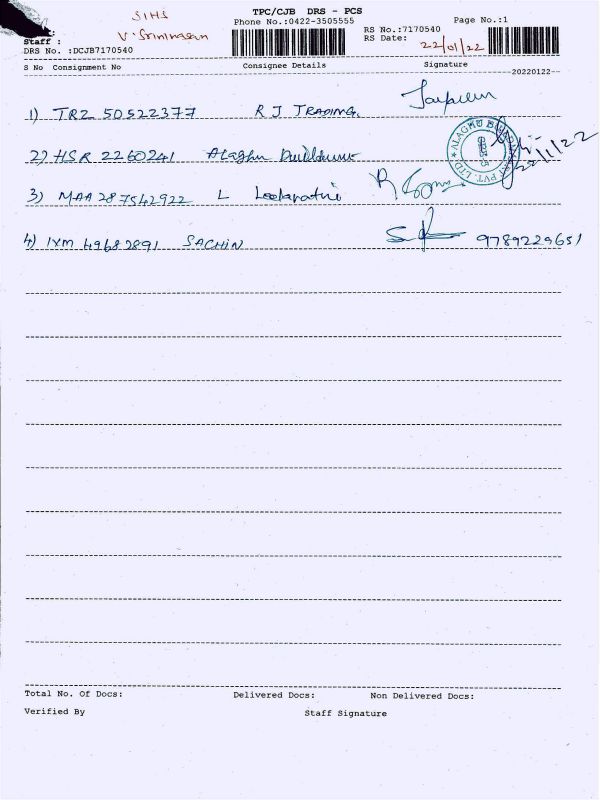 SIHS
V. Srinivasan
TPC/CJB DRS - PCS
Phone No.:0422-3505555
RS No.:7170540
RS Date: 22/01/22
Page No.:1
Staff :
DRS No. :DCJB7170540
S No Consignment No Consignee Details Signature
20220122
1) TRZ 50522377 R J TRADING.
2) HSR 2260241 Alaghu
22/1/22
3) MAA 287542922 L
4) IXM 49682891 SACHIN 9789229651
Total No. Of Docs: Delivered Docs: Non Delivered Docs:
Verified By Staff Signature